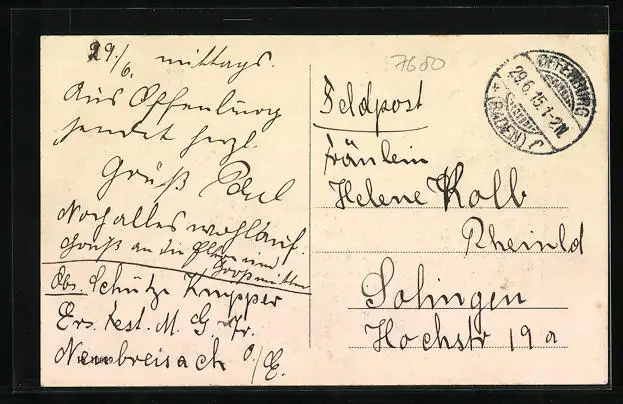 29/6. mittags.
Aus Offenburg
sendet herzl.
Gruß Paul
Noch alles wohlauf.
Gruß an die Eltern und
Großmutter
Abs. Schütze Knipper
Ers. Fest. M. G. Tr.
Neubreisach O/E.
7680
OFFENBURG
29.6.15.1-2N.
(BADEN)
Feldpost
Fräulein
Helene Kolb
Rheinld
Solingen
Hochstr 19a